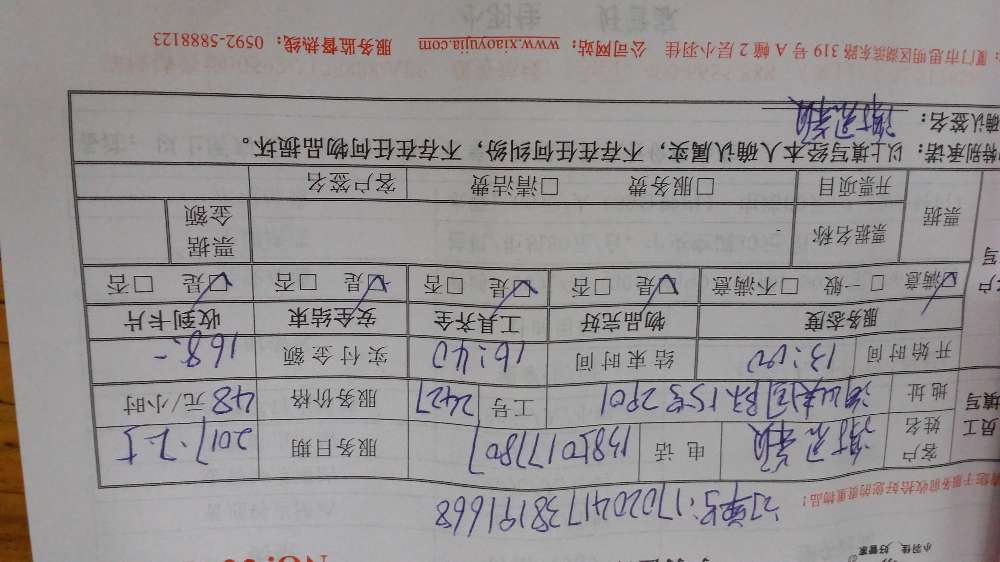 小羽佳 好管家
NO:00
订单号:17020417381911668
您于服务前收拾好您的贵重物品!
员工填写
客户姓名 电话 13850177807 服务日期 2017.2.5
地址 15号2P01 工号 2427 服务价格 48元/小时
开始时间 13:00 结束时间 16:40 实付金额 168.-
服务态度 物品完好 工具齐全 安全结束 收到卡片
☑满意 □一般 □不满意 ☑是 □否 ☑是 □否 ☑是 □否 ☑是 □否
票据 票据名称 票据金额
开票项目 □服务费 □清洁费 客户签名
特别承诺:以上填写经本人确认属实,不存在任何纠纷,不存在任何物品损坏。
确认签名:
厦门市思明区湖滨东路319号A幢2层小羽佳 公司网站:www.xiaoyujia.com 服务监督热线:0592-5888123